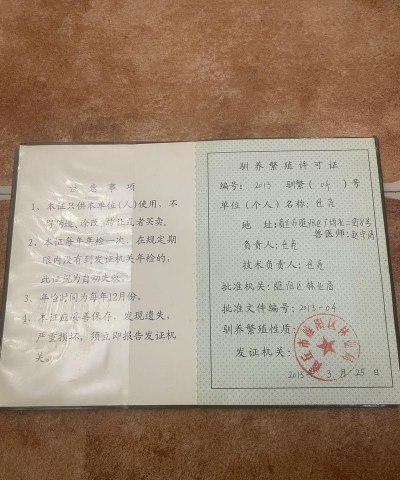 注意事项
1、本证只供本单位(人)使用，不
得伪造、涂改、转让或者买卖。
2、本证每年年检一次，在规定期
限内没有到发证机关年检的，
此证视为自动失效。
3、年检时间为每年12月份。
4、本证应妥善保存，发现遗失，
严重损坏，须立即报告发证机
关。
驯养繁殖许可证
编号：2013 驯繁(04)号
单位(个人)名称：任尧
地址：
兽医师：
负责人：任尧
技术负责人：任尧
批准机关：睢阳区林业局
批准文件编号：2013-04
驯养繁殖性质：
发证机关：
商丘市睢阳区林业局
2013年3月25日